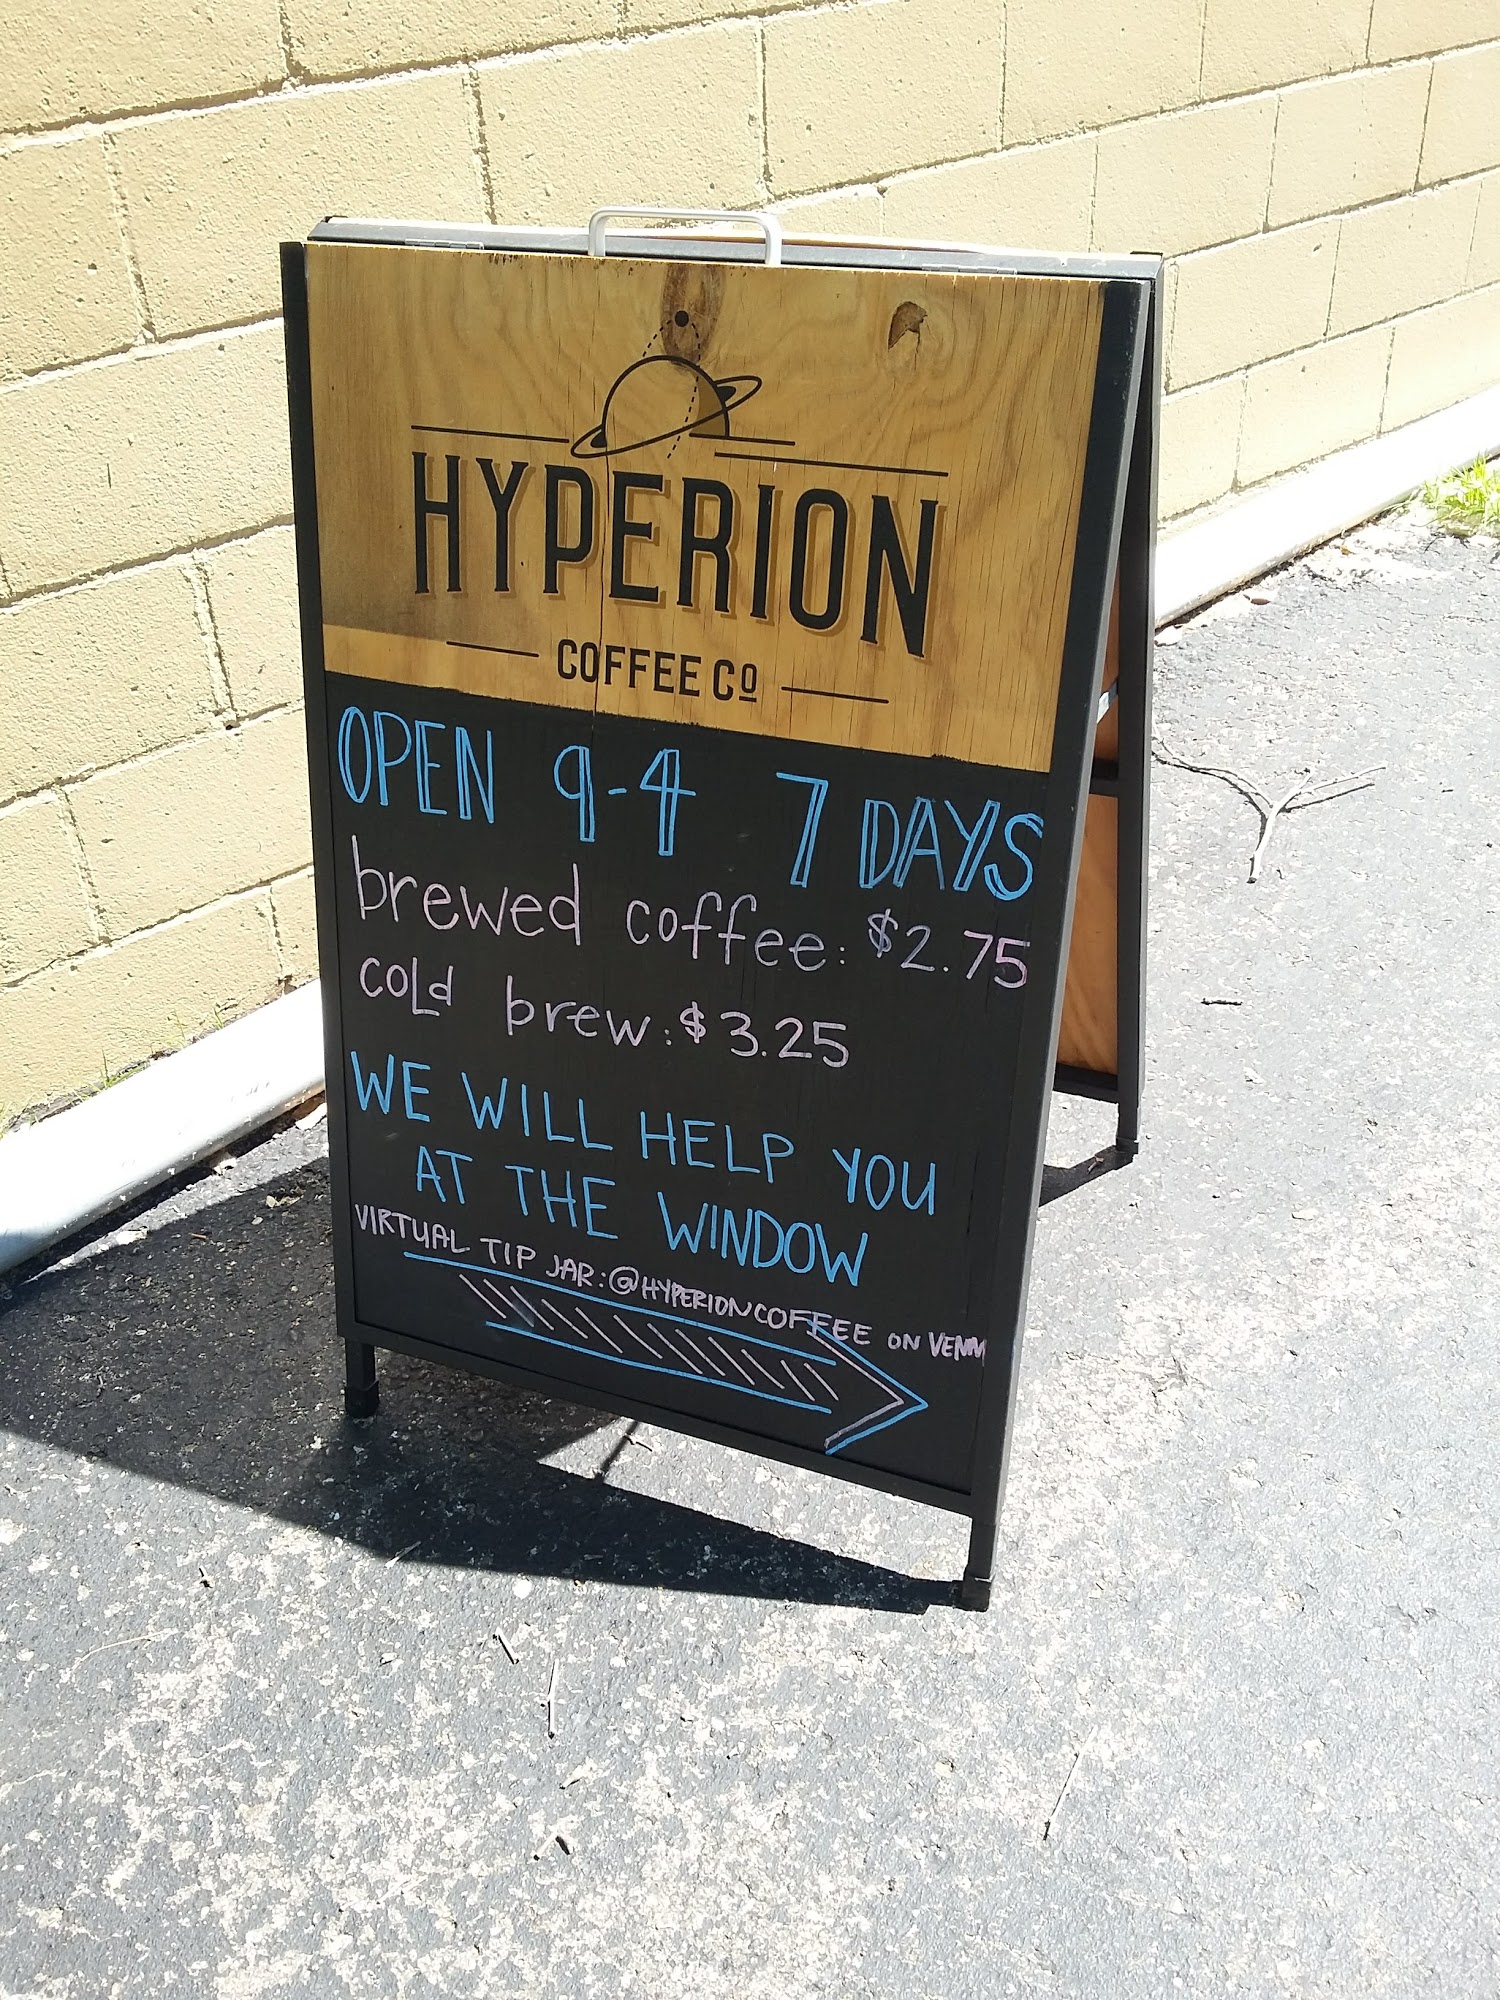 HYPERION
COFFEE Co
OPEN 9-4 7 DAYS
brewed coffee: $2.75
cold brew: $3.25
WE WILL HELP YOU
AT THE WINDOW
VIRTUAL TIP JAR: @HYPERIONCOFFEE ON VENM